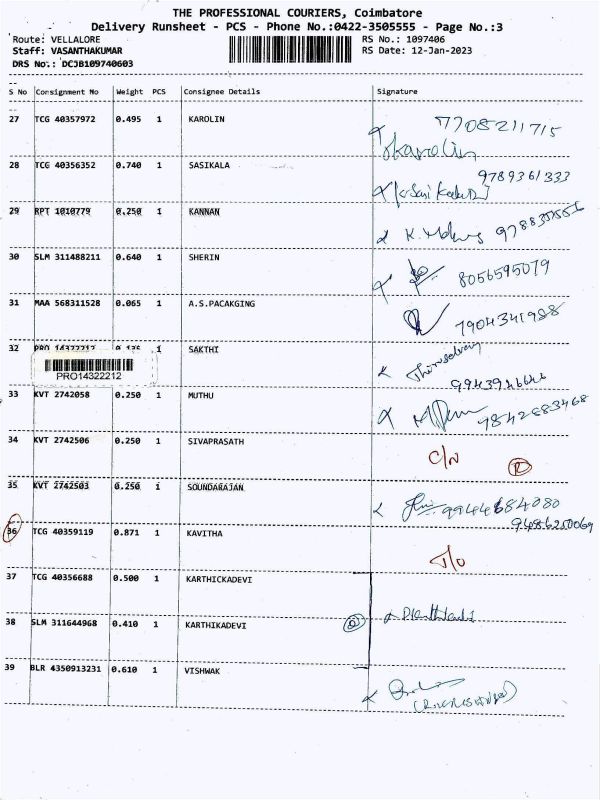 THE PROFESSIONAL COURIERS, Coimbatore
Delivery Runsheet - PCS - Phone No.:0422-3505555 - Page No.:3
Route: VELLALORE RS No.: 1097406
Staff: VASANTHAKUMAR RS Date: 12-Jan-2023
DRS No.: DCJB109740603
S No Consignment No Weight PCS Consignee Details Signature
27 TCG 40357972 0.495 1 KAROLIN 7708211715
Karolin
28 TCG 40356352 0.740 1 SASIKALA 9789361333
29 RPT 1010779 0.250 1 KANNAN
30 SLM 311488211 0.640 1 SHERIN 8056595079
31 MAA 568311528 0.065 1 A.S.PACAKGING 7904341988
32 PRO 14322212 0.136 1 SAKTHI
PRO14322212
33 KVT 2742058 0.250 1 MUTHU
34 KVT 2742506 0.250 1 SIVAPRASATH C/N R
35 KVT 2742503 0.250 1 SOUNDARAJAN 9944684080
9486250069
36 TCG 40359119 0.871 1 KAVITHA
37 TCG 40356688 0.500 1 KARTHICKADEVI
38 SLM 311644968 0.410 1 KARTHIKADEVI
39 BLR 4350913231 0.610 1 VISHWAK